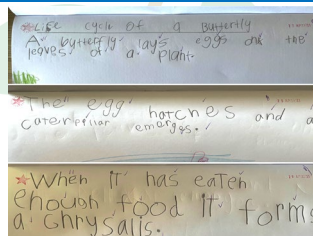 Life cycle of a Butterfly
A butterfly lays eggs onk the
leaves of a plant.
The egg hatches and a
caterpillar emarges.
When it has eaten
enough food it forms
a chrysalis.